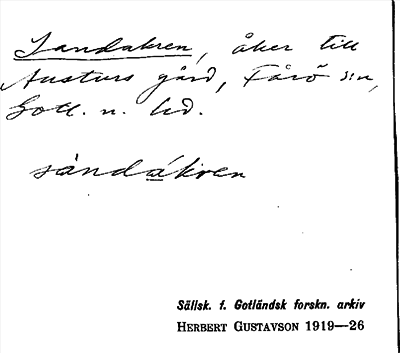 Sandakren, åker till
Austurs gård, Fårö s:n,
Gotl. n. hd.
sandákren
Sällsk. f. Gotländsk forskn. arkiv
HERBERT GUSTAVSON 1919—26